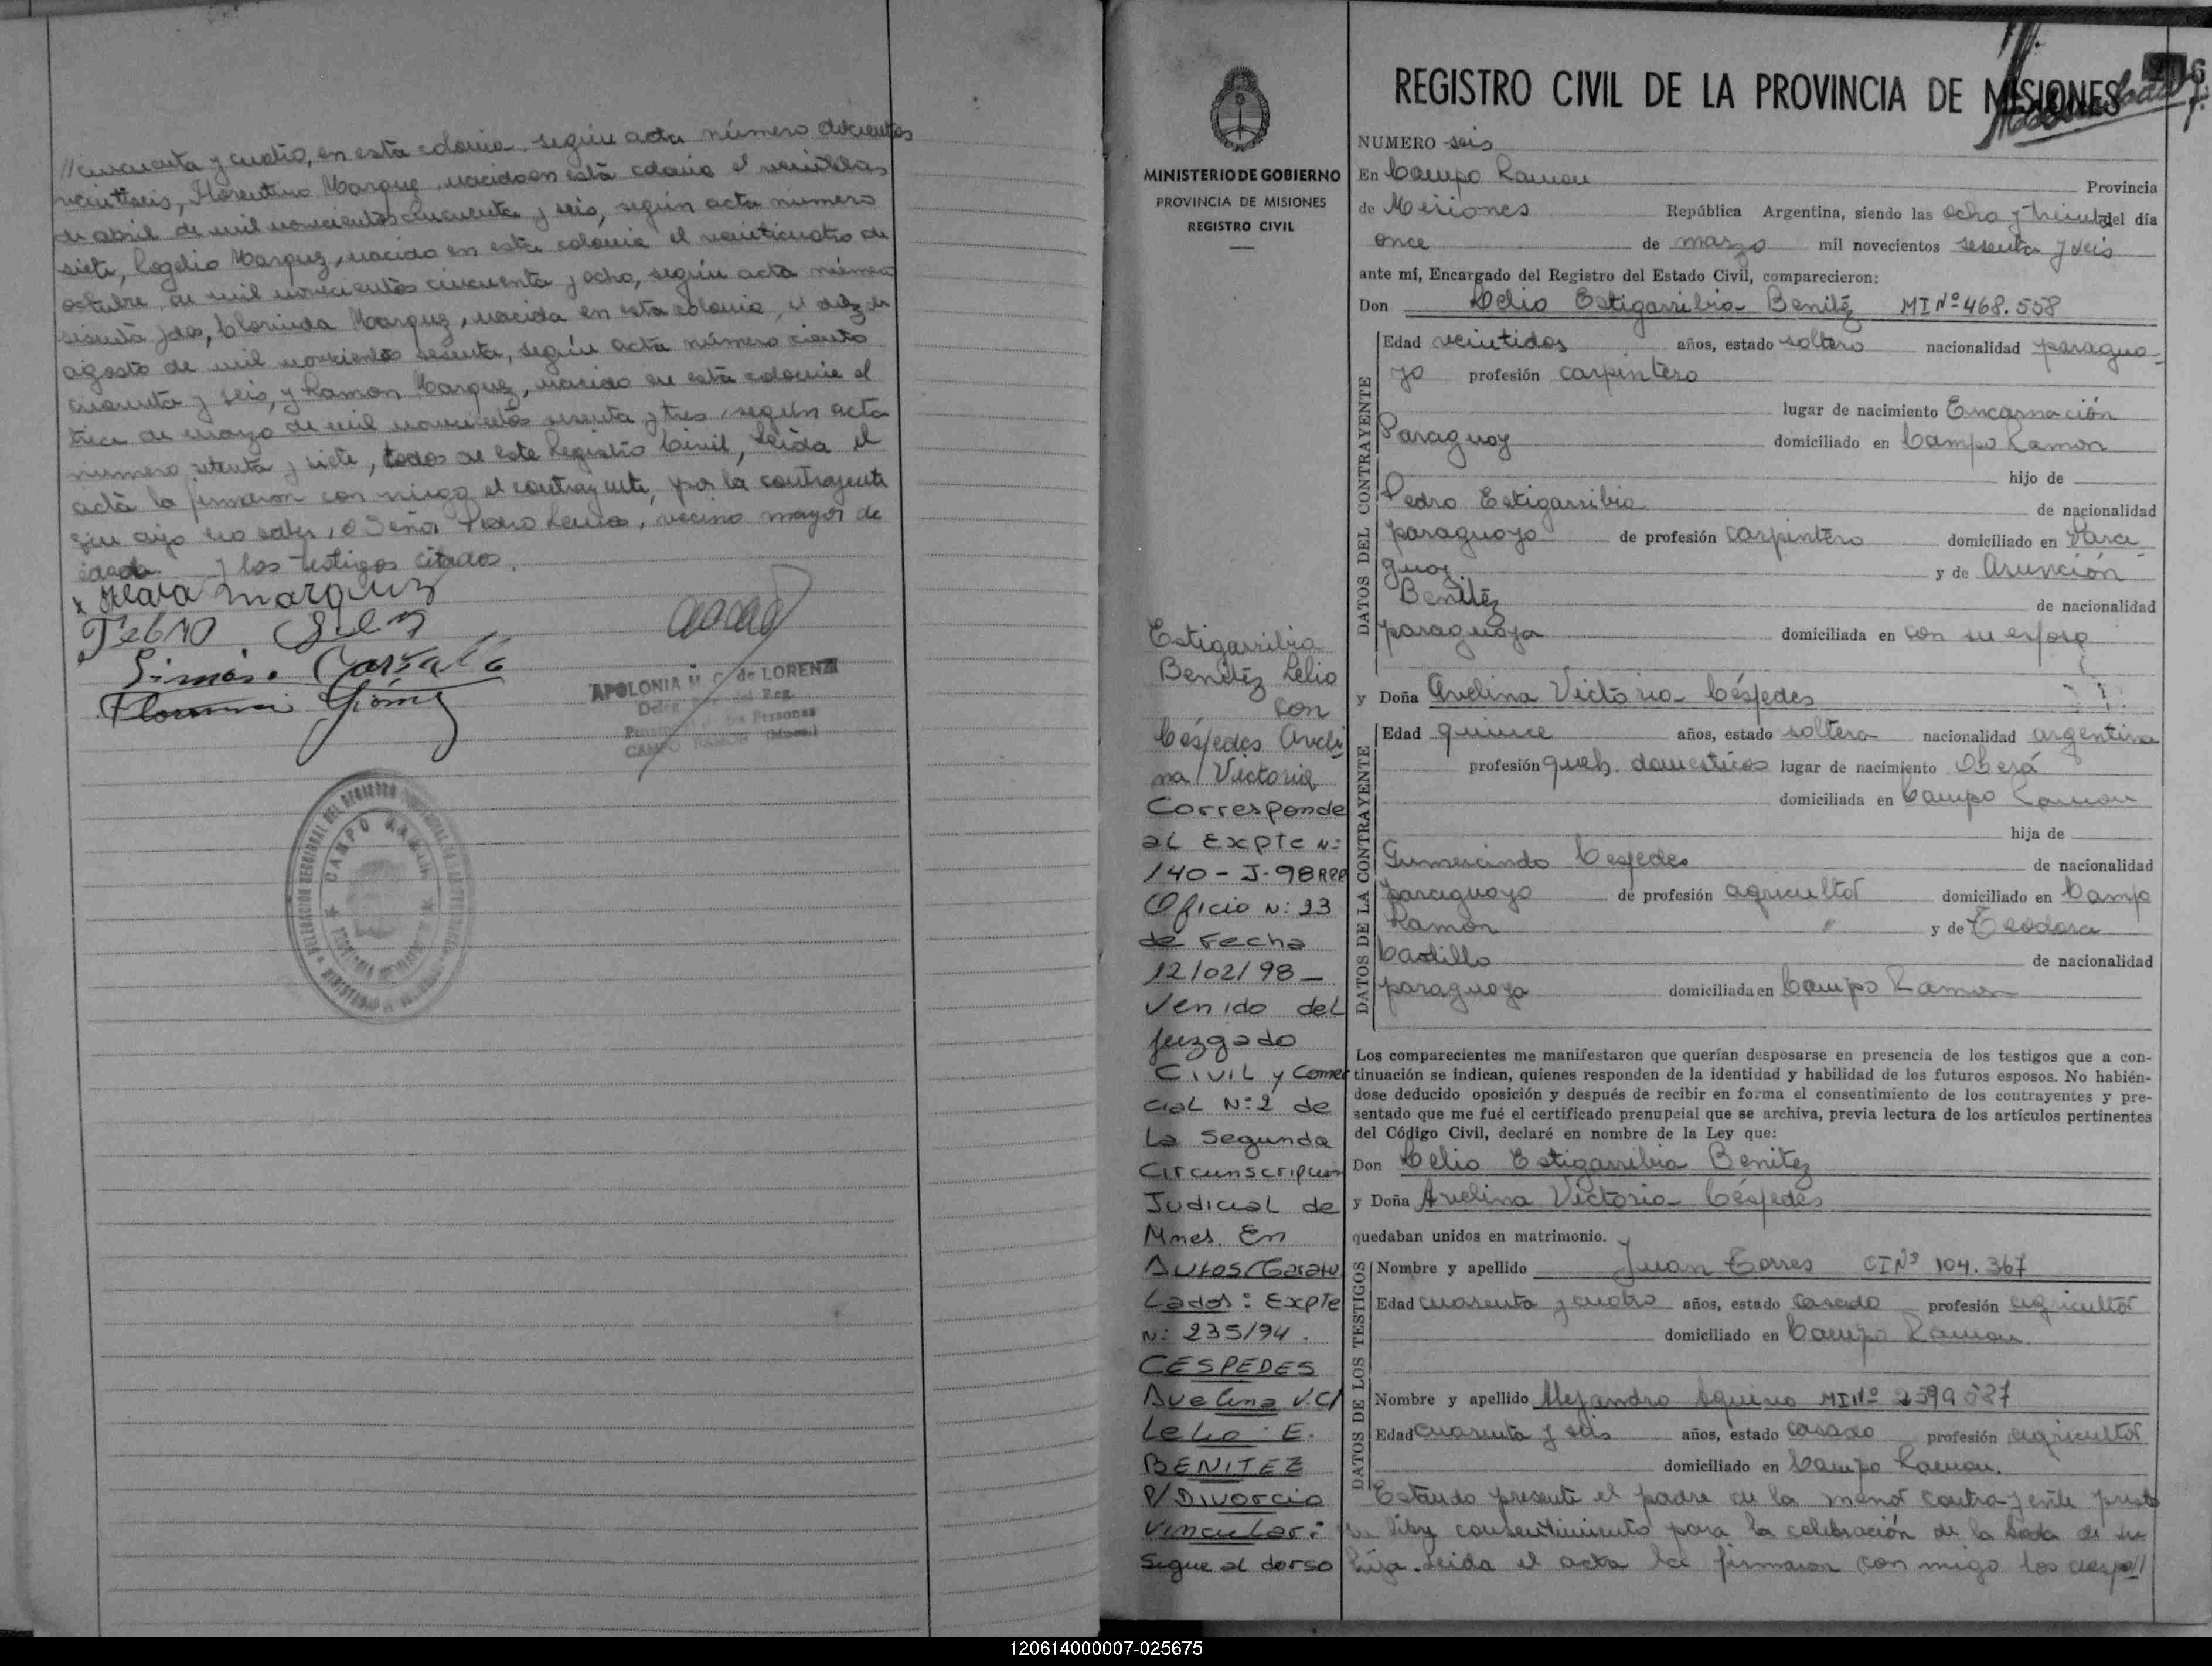 // cincuenta y cuatro, en esta colonia, según acta número doscientos
veintiseis, Florentino Marquez, nacido en está colonia el veintidos
de abril de mil novecientos cincuenta y seis, según acta número
siete, Rogelio Marquez, nacido en esta colonia el veinticuatro de
octubre de mil novecientos cincuenta y ocho, según acta número
sesenta y dos, Clorinda Marquez, nacida en esta colonia, el diez de
agosto de mil novecientos sesenta, según acta número ciento
cincuenta y seis, y Ramon Marquez, nacido en está colonia el
trece de marzo de mil novecientos sesenta y tres, según acta
número setenta y siete, todos de este Registro Civil, leida el
acta la firmaron con migo el contrayente, por la contrayente
que dijo no saber, el Señor Pedro, vecino mayor de
edad y los testigos citados.
Marquez
APOLONIA M. C. de LORENZI
CAMPO RAMON
CAMPO RAMON
MINISTERIO DE GOBIERNO
PROVINCIA DE MISIONES
REGISTRO CIVIL
Estigarribia
Benitéz Lelio
con
Céspedes Aveli
na Victoria
Corresponde
al Expte N:
140 - J - 98 RPP
Oficio N: 23
de Fecha
12/02/98 -
Venido del
Juzgado
Civil y Comer
cial N:2 de
La Segunda
Circunscripcion
Judicial de
Mnes. En
Autos Caratu
Lados: Expte
N: 235/94.
CESPEDES
Avelina V. C/
Lelio E.
BENITEZ
P/ Divorcio
Vincular:
Sigue al dorso
REGISTRO CIVIL DE LA PROVINCIA DE MISIONES
NUMERO seis
En Campo Ramon Provincia
de Misiones República Argentina, siendo las ocho y treinta del día
once de marzo mil novecientos sesenta y seis
ante mí, Encargado del Registro del Estado Civil, comparecieron:
Don Lelio Estigarribia Benitéz MI Nº 468.558
DATOS DEL CONTRAYENTE
Edad veintidos años, estado soltero nacionalidad paragua-
yo profesión carpintero
lugar de nacimiento Encarnación
Paraguay domiciliado en Campo Ramon
hijo de
Pedro Estigarribia de nacionalidad
paraguayo de profesión carpintero domiciliado en Para
guay y de Asunción
Benitéz de nacionalidad
paraguaya domiciliada en con su esposo
y Doña Avelina Victoria Céspedes
DATOS DE LA CONTRAYENTE
Edad quince años, estado soltera nacionalidad argentina
profesión queh. domesticos lugar de nacimiento Oberá
domiciliada en Campo Ramon
hija de
Gumercindo Cespedes de nacionalidad
paraguayo de profesión agricultor domiciliado en Campo
Ramon y de Teodora
Castillo de nacionalidad
paraguaya domiciliada en Campo Ramon
Los comparecientes me manifestaron que querían desposarse en presencia de los testigos que a con-
tinuación se indican, quienes responden de la identidad y habilidad de los futuros esposos. No habién-
dose deducido oposición y después de recibir en forma el consentimiento de los contrayentes y pre-
sentado que me fué el certificado prenupcial que se archiva, previa lectura de los artículos pertinentes
del Código Civil, declaré en nombre de la Ley que:
Don Lelio Estigarribia Benitez
y Doña Avelina Victoria Céspedes
quedaban unidos en matrimonio.
DATOS DE LOS TESTIGOS
Nombre y apellido Juan Torres CI Nº 104.367
Edad cuarenta y cuatro años, estado casado profesión agricultor
domiciliado en Campo Ramon.
Nombre y apellido Alejandro Aquino MI Nº
Edad cuarenta y seis años, estado casado profesión agricultor
domiciliado en Campo Ramon.
Estando presente el padre de la menor contrayente presto
su libre consentimiento para la celebración de la boda de su
hija. leida el acta la firmaron con migo los despo//
120614000007-025675